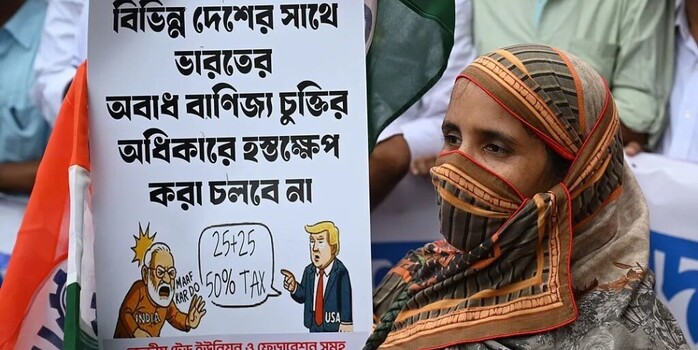 বিভিন্ন দেশের সাথে
ভারতের
অবাধ বাণিজ্য চুক্তির
অধিকারে হস্তক্ষেপ
করা চলবে না
25+25
50% TAX
MAAF
KAR DO
INDIA
USA
ট্রেড ইউনিয়ন ও ফেডারেশন সমূহ